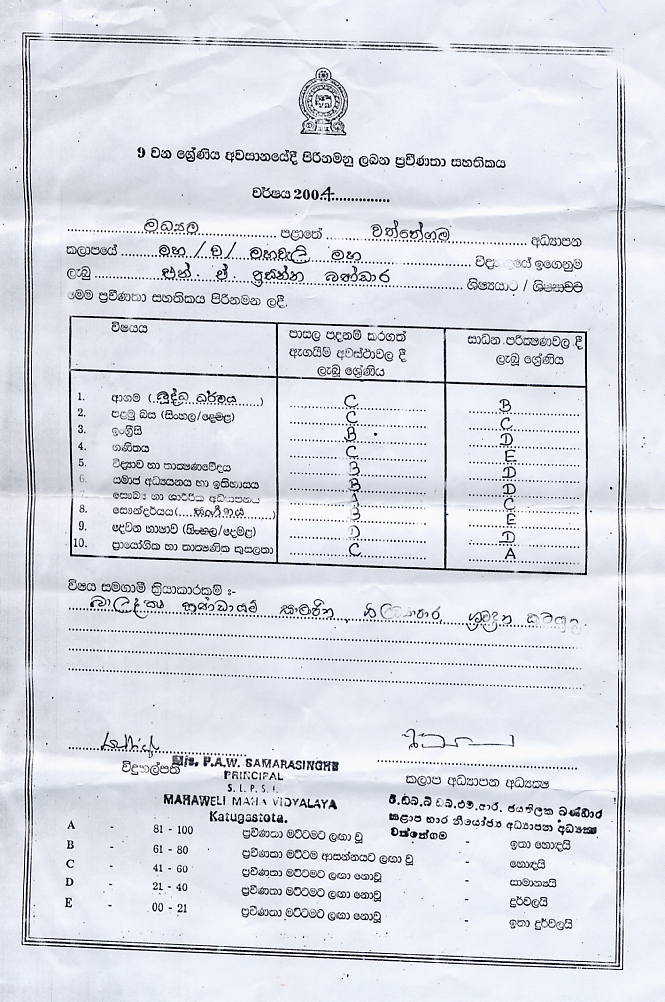 9 වන ශ්‍රේණිය අවසානයේදී පිරිනමනු ලබන ප්‍රවීණතා සහතිකය
වර්ෂය 2004
මධ්‍යම පළාතේ වත්තේගම අධ්‍යාපන
කලාපයේ මහ/ව/මහවැලි මහ විද්‍යාලයේ ඉගෙනුම
ලැබූ එන්. ඒ ප්‍රසන්න බණ්ඩාර ශිෂ්‍යයාට / ශිෂ්‍යාවට
මෙම ප්‍රවීණතා සහතිකය පිරිනමන ලදී.
විෂයය පාසල පදනම් කරගත් ඇගයීම් අවස්ථාවල දී ලැබූ ශ්‍රේණිය සාධන පරීක්ෂණවල දී ලැබූ ශ්‍රේණිය
1. ආගම (බුද්ධ ධර්මය) C B
2. පළමු බස (සිංහල/දෙමළ) C C
3. ඉංග්‍රීසි B D
4. ගණිතය C E
5. විද්‍යාව හා තාක්ෂණවේදය B D
6. සමාජ අධ්‍යයනය හා ඉතිහාසය B D
7. සෞඛ්‍ය හා ශාරීරික අධ්‍යාපනය A C
8. සෞන්දර්යය (සංගීතය) B E
9. දෙවන භාෂාව (සිංහල/දෙමළ) D D
10. ප්‍රායෝගික හා තාක්ෂණික කුසලතා C A
විෂය සමගාමී ක්‍රියාකාරකම් :-
බාලදක්ෂ කණ්ඩායම් සාමාජික, ශ්‍රමදාන කටයුතු.
විදුහල්පති
Mrs. P.A.W. SAMARASINGHE
PRINCIPAL
S. L. P. S. I.
MAHAWELI MAHA VIDYALAYA
Katugastota.
කලාප අධ්‍යාපන අධ්‍යක්ෂ
ඊ.ඩබ්.බී ඩබ්.එම්.ආර්. ජයතිලක බණ්ඩාර
කළාප භාර නියෝජ්‍ය අධ්‍යාපන අධ්‍යක්ෂ
වත්තේගම
A - 81 - 100 ප්‍රවීණතා මට්ටමට ලඟා වූ - ඉතා හොඳයි
B - 61 - 80 ප්‍රවීණතා මට්ටම ආසන්නයට ලඟා වූ - හොඳයි
C - 41 - 60 ප්‍රවීණතා මට්ටමට ලඟා නොවූ - සාමාන්‍යයි
D - 21 - 40 ප්‍රවීණතා මට්ටමට ලඟා නොවූ - දුර්වලයි
E - 00 - 21 ප්‍රවීණතා මට්ටමට ලඟා නොවූ - ඉතා දුර්වලයි